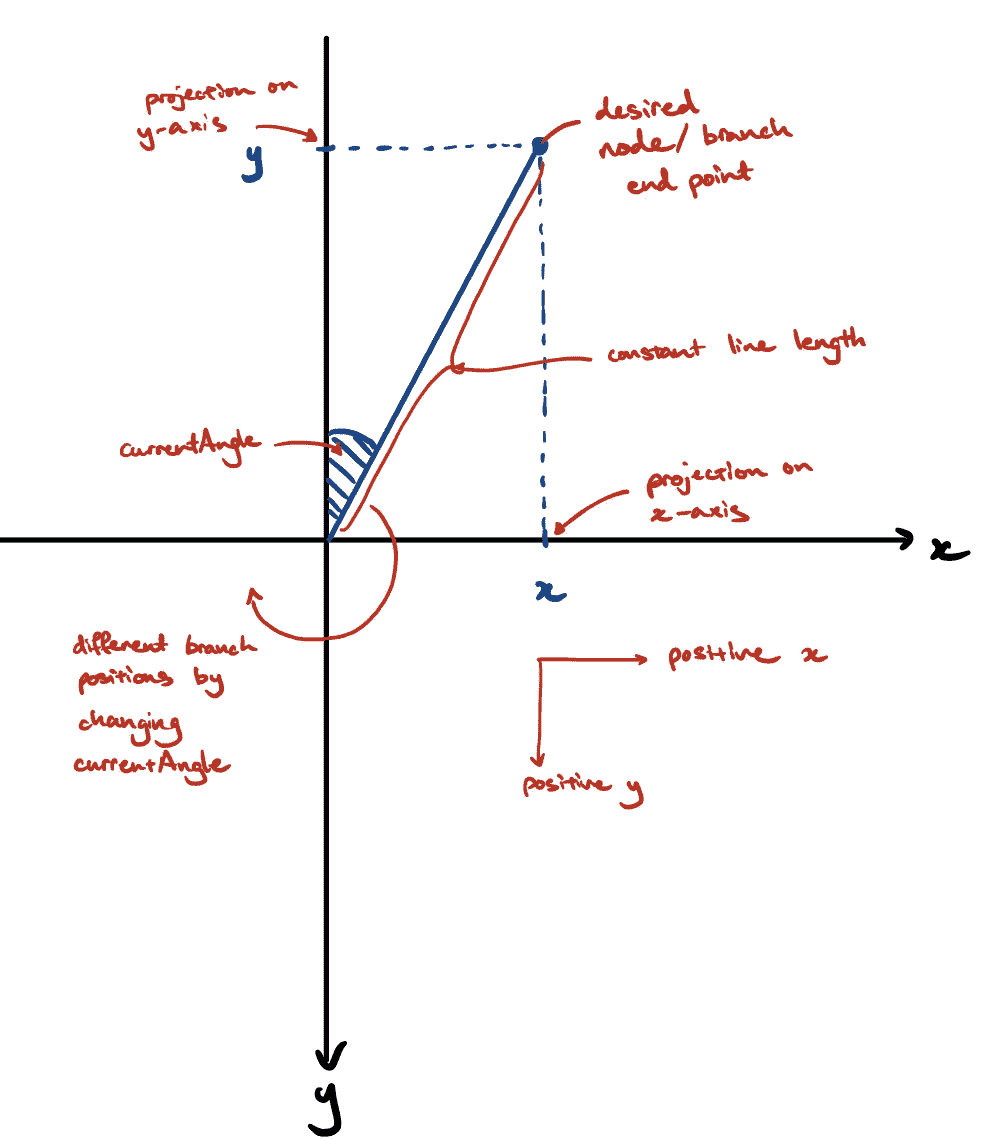 projection on
y-axis
y
desired
node/branch
end point
constant line length
currentAngle
projection on
x-axis
x
x
different branch
positions by
changing
currentAngle
positive x
positive y
y